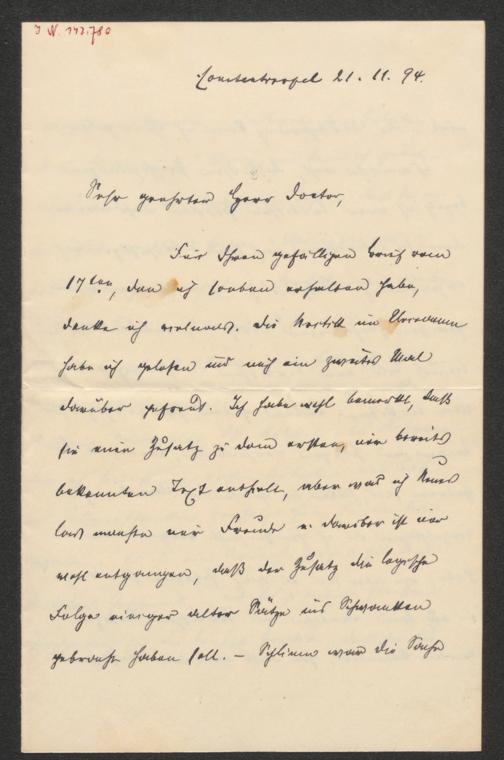 I. N. 143.780
Constantinopel 21. 11. 94.
Sehr geehrter Herr Doctor,
Für Ihren gefälligen Brief vom
17ten, den ich soeben erhalten habe,
danke ich vielmals. Die Kritik im
habe ich gelesen und mich ein zweites Mal
darüber gefreut. Ich habe wohl bemerkt, daß
sie einen Zusatz zu dem ersten, mir bereits
bekannten Text enthielt, aber was ich Neues
las machte mir Freude u. darüber ist mir
wohl entgangen, daß der Zusatz die logische
Folge einiger alter Sätze ins Schwanken
gebracht haben soll. – Schlimm war die Sache